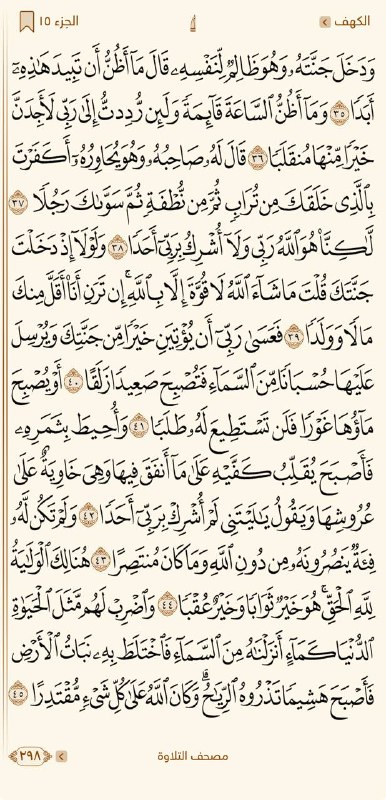 الكهف
الجزء ١٥
وَدَخَلَ جَنَّتَهُۥ وَهُوَ ظَالِمٞ لِّنَفۡسِهِۦ قَالَ مَآ أَظُنُّ أَن تَبِيدَ هَٰذِهِۦٓ
أَبَدٗا ٣٥ وَمَآ أَظُنُّ ٱلسَّاعَةَ قَآئِمَةٗ وَلَئِن رُّدِدتُّ إِلَىٰ رَبِّي لَأَجِدَنَّ
خَيۡرٗا مِّنۡهَا مُنقَلَبٗا ٣٦ قَالَ لَهُۥ صَاحِبُهُۥ وَهُوَ يُحَاوِرُهُۥٓ أَكَفَرۡتَ
بِٱلَّذِي خَلَقَكَ مِن تُرَابٖ ثُمَّ مِن نُّطۡفَةٖ ثُمَّ سَوَّىٰكَ رَجُلٗا ٣٧
لَّٰكِنَّا۠ هُوَ ٱللَّهُ رَبِّي وَلَآ أُشۡرِكُ بِرَبِّيٓ أَحَدٗا ٣٨ وَلَوۡلَآ إِذۡ دَخَلۡتَ
جَنَّتَكَ قُلۡتَ مَا شَآءَ ٱللَّهُ لَا قُوَّةَ إِلَّا بِٱللَّهِۚ إِن تَرَنِ أَنَا۠ أَقَلَّ مِنكَ
مَالٗا وَوَلَدٗا ٣٩ فَعَسَىٰ رَبِّيٓ أَن يُؤۡتِيَنِ خَيۡرٗا مِّن جَنَّتِكَ وَيُرۡسِلَ
عَلَيۡهَا حُسۡبَانٗا مِّنَ ٱلسَّمَآءِ فَتُصۡبِحَ صَعِيدٗا زَلَقًا ٤٠ أَوۡ يُصۡبِحَ
مَآؤُهَا غَوۡرٗا فَلَن تَسۡتَطِيعَ لَهُۥ طَلَبٗا ٤١ وَأُحِيطَ بِثَمَرِهِۦ
فَأَصۡبَحَ يُقَلِّبُ كَفَّيۡهِ عَلَىٰ مَآ أَنفَقَ فِيهَا وَهِيَ خَاوِيَةٌ عَلَىٰ
عُرُوشِهَا وَيَقُولُ يَٰلَيۡتَنِي لَمۡ أُشۡرِكۡ بِرَبِّيٓ أَحَدٗا ٤٢ وَلَمۡ تَكُن لَّهُۥ
فِئَةٞ يَنصُرُونَهُۥ مِن دُونِ ٱللَّهِ وَمَا كَانَ مُنتَصِرًا ٤٣ هُنَالِكَ ٱلۡوَلَٰيَةُ
لِلَّهِ ٱلۡحَقِّۚ هُوَ خَيۡرٞ ثَوَابٗا وَخَيۡرٌ عُقۡبٗا ٤٤ وَٱضۡرِبۡ لَهُم مَّثَلَ ٱلۡحَيَوٰةِ
ٱلدُّنۡيَا كَمَآءٍ أَنزَلۡنَٰهُ مِنَ ٱلسَّمَآءِ فَٱخۡتَلَطَ بِهِۦ نَبَاتُ ٱلۡأَرۡضِ
فَأَصۡبَحَ هَشِيمٗا تَذۡرُوهُ ٱلرِّيَٰحُۗ وَكَانَ ٱللَّهُ عَلَىٰ كُلِّ شَيۡءٖ مُّقۡتَدِرًا ٤٥
مصحف التلاوة
٢٩٨